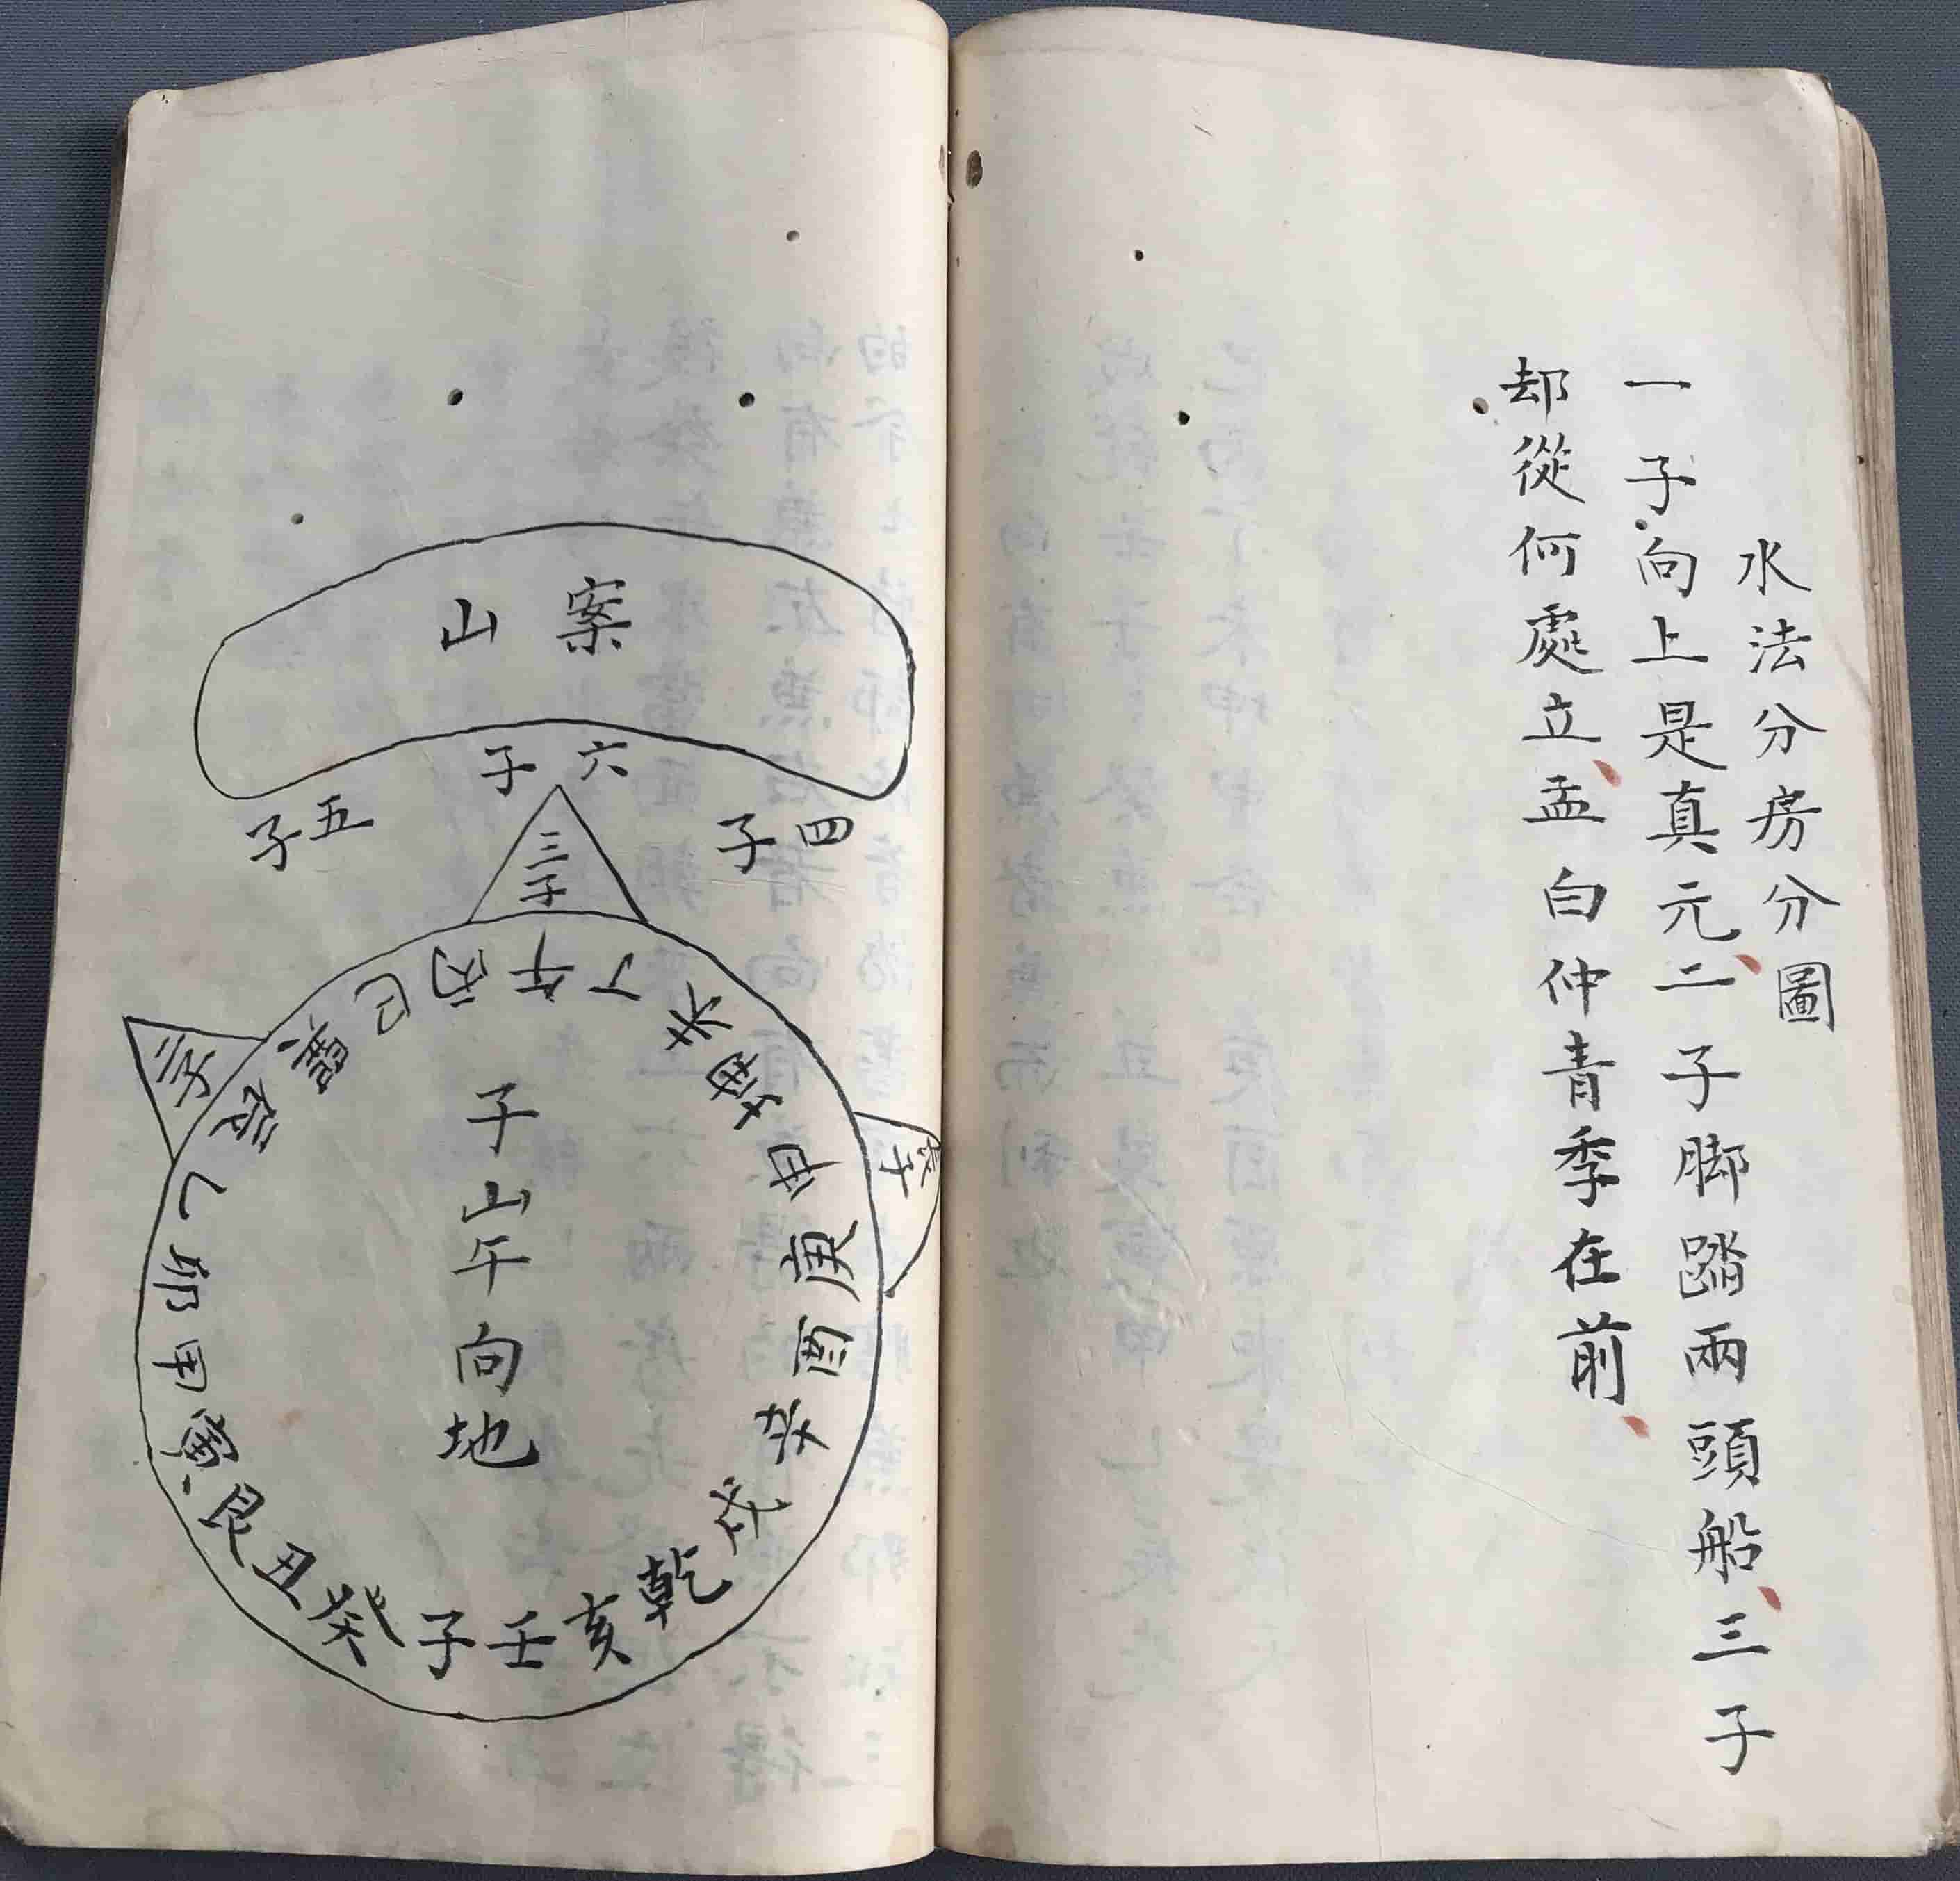 水法分房分圖
一子向上是真元、二子脚踏兩頭船、三子
却從何處立、孟白仲青季在前、
案山
六子
四子
五子
三子
二子
長子
丁午丙巳巽辰乙卯甲寅艮丑癸子壬亥乾戌辛酉庚申坤未
子山午向地